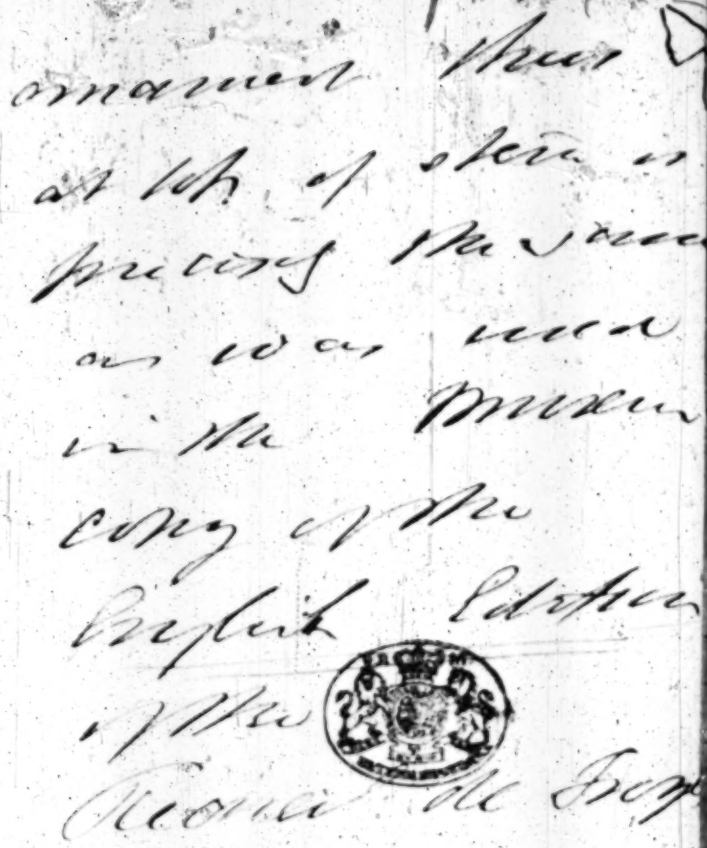 ornament thus
at top of stem is
precisely the same
as was used
in the Museum
copy of the
English Edition
of the
Recueil de Troye